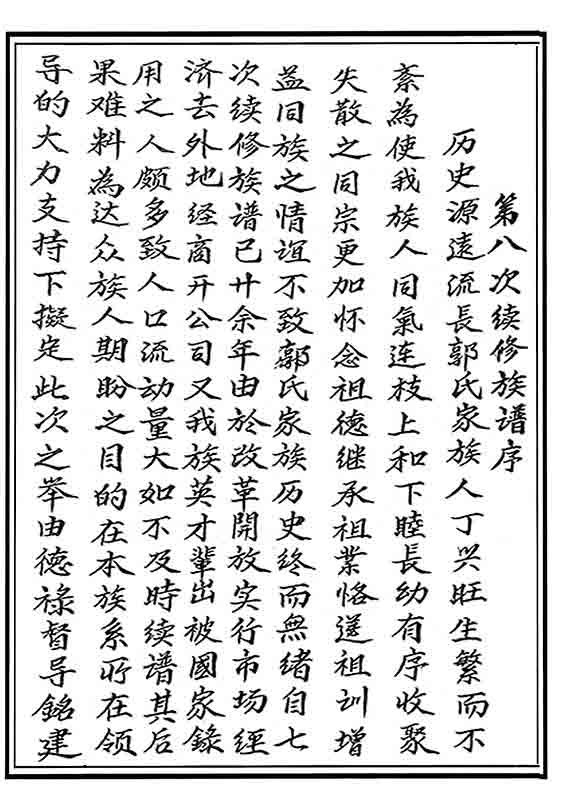 第八次续修族谱序
历史源遠流長郭氏家族人丁兴旺生繁而不
紊為使我族人同氣连枝上和下睦長幼有序收聚
失散之同宗更加怀念祖德继承祖業恪遵祖训增
益同族之情谊不致郭氏家族历史终而無绪自七
次续修族谱已廿余年由於改革開放实行市场经
济去外地经商开公司又我族英才輩出被國家錄
用之人颇多致人口流动量大如不及時续谱其后
果难料為达众族人期盼之目的在本族系所在领
导的大力支持下擬定此次之举由德祿督导銘建